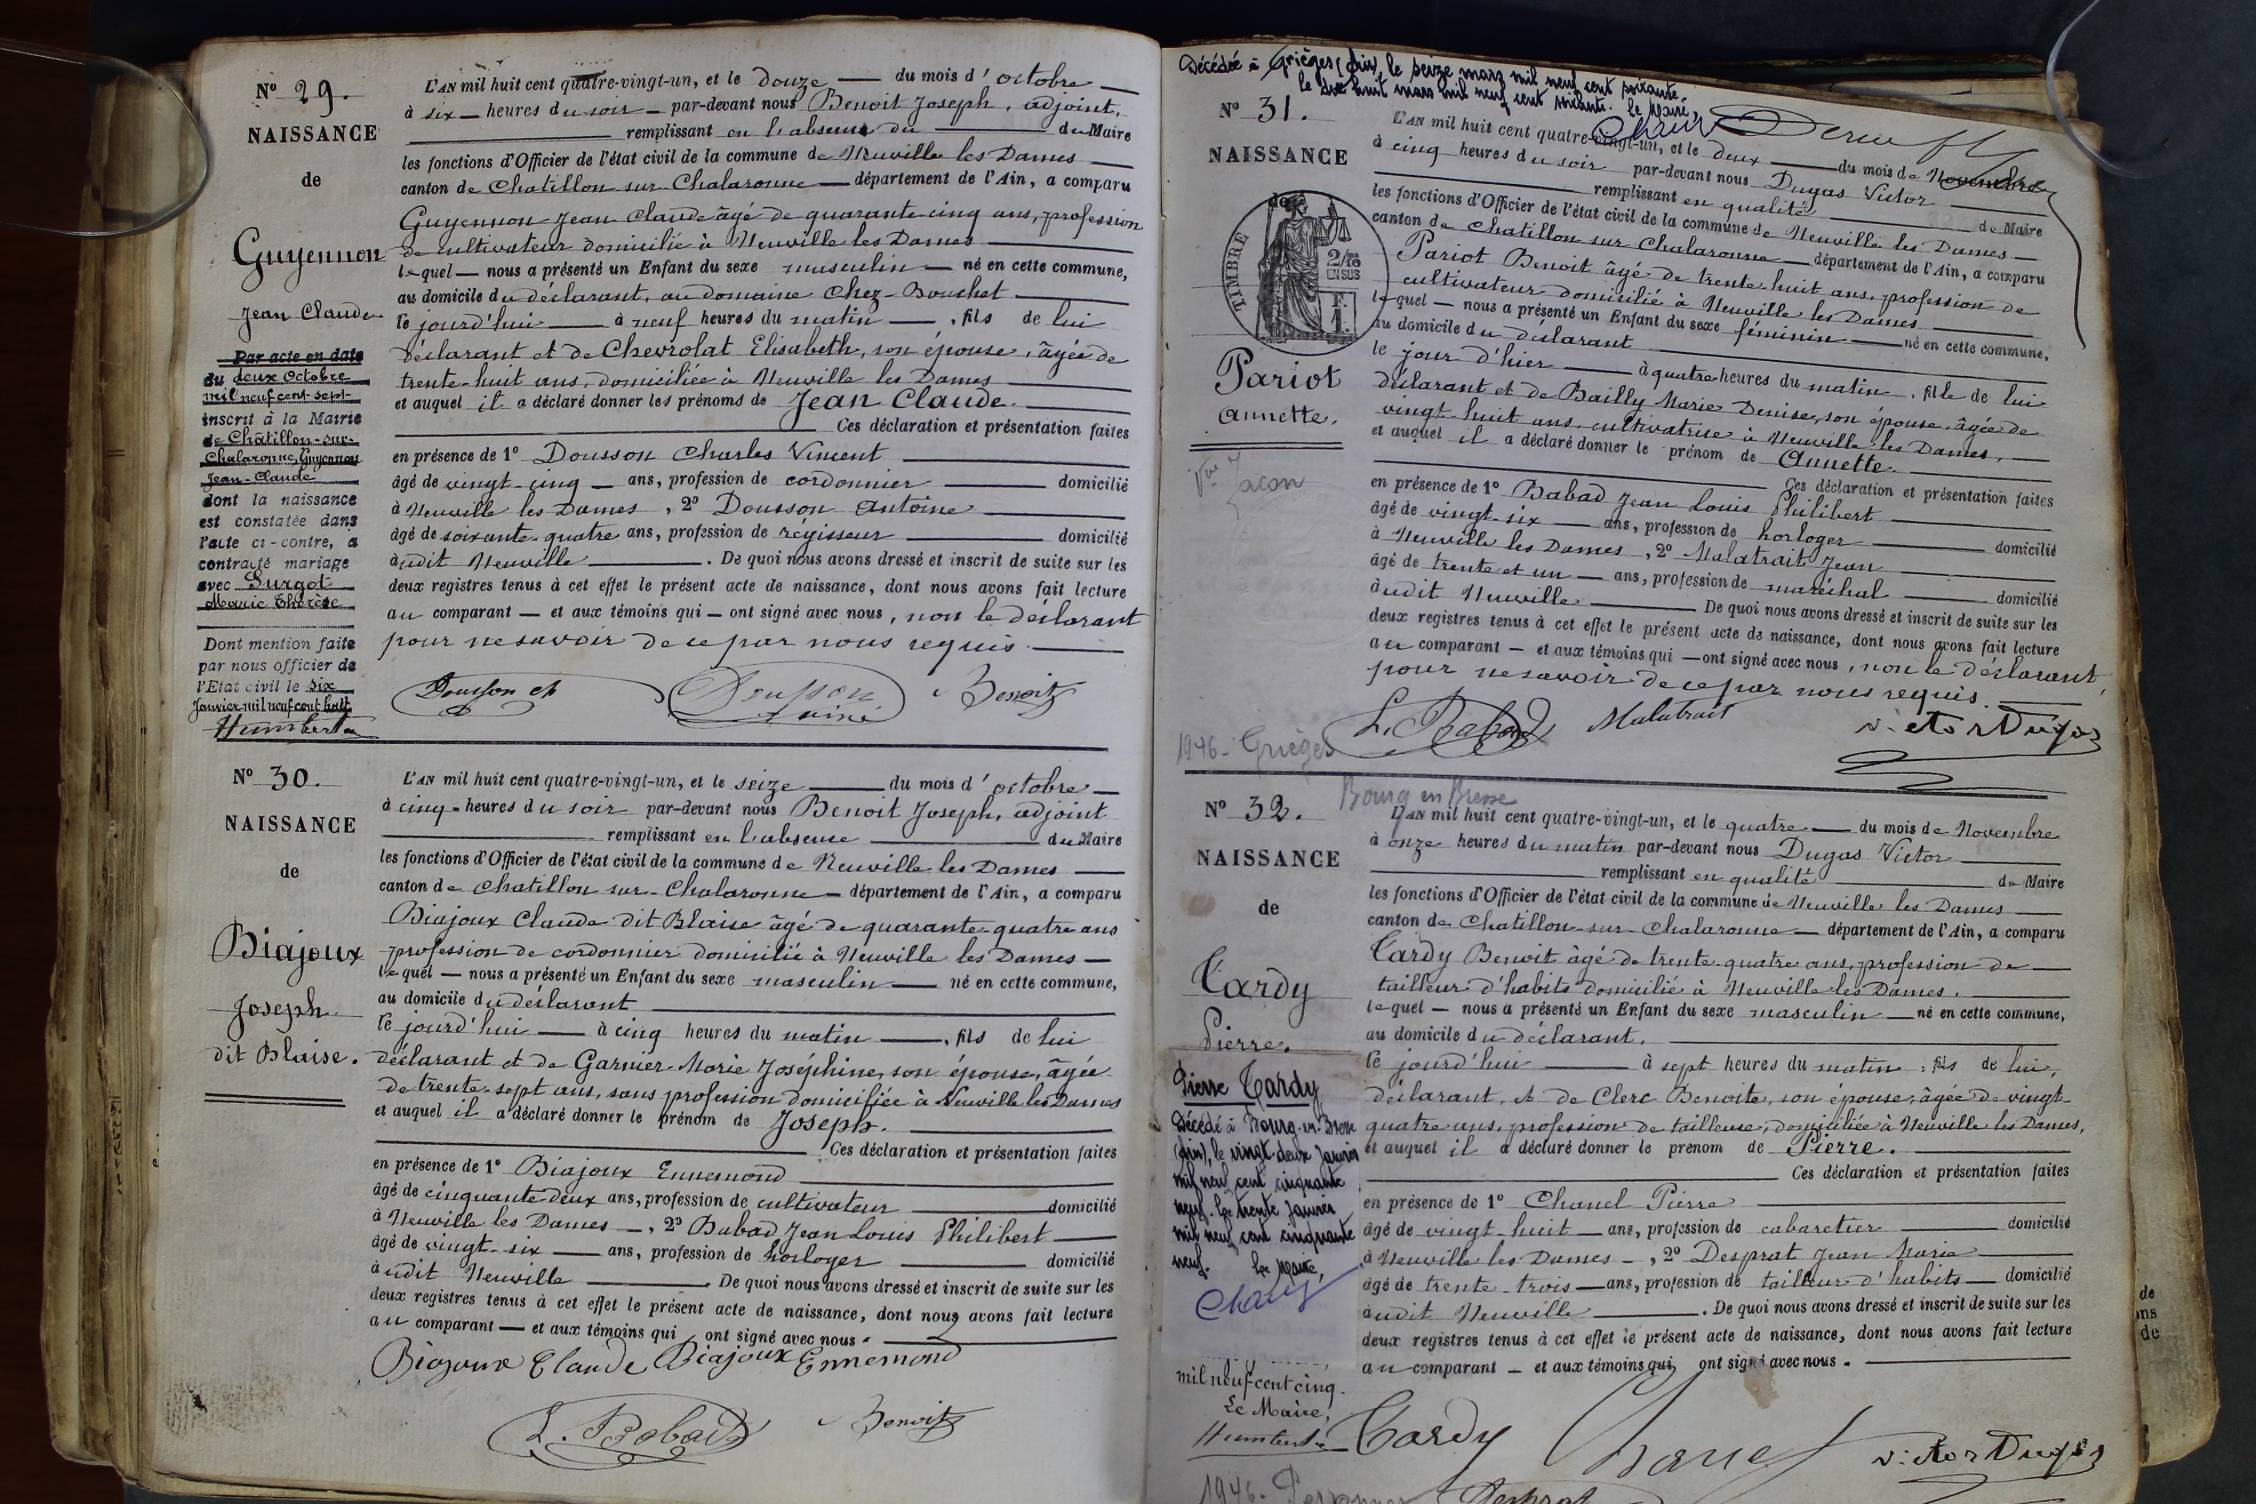 N° 29.
NAISSANCE
de
Guyennon
Jean Claude
Par acte en date
du deux Octobre
mil neuf cent sept
inscrit à la Mairie
de Châtillon-sur-
Chalaronne, Guyennon
Jean-Claude
dont la naissance
est constatée dans
l'acte ci-contre, a
contracté mariage
avec Surgot
Marie Thérèse
Dont mention faite
par nous officier de
l'Etat civil le six
Janvier mil neuf cent huit
Humbert
L'AN mil huit cent quatre-vingt-un, et le douze du mois d'octobre
à six heures du soir par-devant nous Benoit Joseph, adjoint,
remplissant en l'absence du du Maire
les fonctions d'Officier de l'état civil de la commune de Neuville les Dames
canton de Chatillon sur Chalaronne département de l'Ain, a comparu
Guyennon Jean Claude âgé de quarante cinq ans, profession
de cultivateur domicilié à Neuville les Dames
lequel nous a présenté un Enfant du sexe masculin né en cette commune,
au domicile du déclarant, au domaine Chez-Bouchet
le jourd'hui à neuf heures du matin, fils de lui
déclarant et de Chevrolat Elisabeth, son épouse, âgée de
trente-huit ans, domiciliée à Neuville les Dames
et auquel il a déclaré donner les prénoms de Jean Claude.
Ces déclaration et présentation faites
en présence de 1° Dousson Charles Vincent
âgé de vingt-cinq ans, profession de cordonnier domicilié
à Neuville les Dames, 2° Dousson Antoine
âgé de soixante-quatre ans, profession de régisseur domicilié
audit Neuville. De quoi nous avons dressé et inscrit de suite sur les
deux registres tenus à cet effet le présent acte de naissance, dont nous avons fait lecture
au comparant et aux témoins qui ont signé avec nous, non le déclarant
pour ne savoir de ce par nous requis.
Dousson ch Dousson ainé Benoit
N° 30.
NAISSANCE
de
Biajoux
Joseph
dit Blaise.
L'AN mil huit cent quatre-vingt-un, et le seize du mois d'octobre
à cinq heures du soir par-devant nous Benoit Joseph, adjoint
remplissant en l'absence du Maire
les fonctions d'Officier de l'état civil de la commune de Neuville les Dames
canton de Chatillon sur-Chalaronne département de l'Ain, a comparu
Biajoux Claude dit Blaise âgé de quarante-quatre ans
profession de cordonnier domicilié à Neuville les Dames
lequel nous a présenté un Enfant du sexe masculin né en cette commune,
au domicile du déclarant
le jourd'hui à cinq heures du matin, fils de lui
déclarant et de Garnier Marie Joséphine, son épouse, âgée
de trente-sept ans, sans profession domiciliée à Neuville les Dames
et auquel il a déclaré donner le prénom de Joseph.
Ces déclaration et présentation faites
en présence de 1° Biajoux Ennemond
âgé de cinquante-deux ans, profession de cultivateur domicilié
à Neuville les Dames, 2° Babad Jean Louis Philibert
âgé de vingt-six ans, profession de horloger domicilié
audit Neuville. De quoi nous avons dressé et inscrit de suite sur les
deux registres tenus à cet effet le présent acte de naissance, dont nous avons fait lecture
au comparant et aux témoins qui ont signé avec nous.
Biajoux Claude Biajoux Ennemond
L. Babad Benoit
Décédée à Grièges (Ain), le seize mars mil neuf cent soixante.
le dix huit mars mil neuf cent soixante. Le Maire,
N° 31.
NAISSANCE
de
TIMBRE
2/10
EN SUS
F.
1.
Pariot
Annette.
Vve Jacon
1946 - Grièges
L'AN mil huit cent quatre-vingt-un, et le deux du mois de Novembre
à cinq heures du soir par-devant nous Dugas Victor
remplissant en qualité de Maire
les fonctions d'Officier de l'état civil de la commune de Neuville les Dames
canton de Chatillon sur Chalaronne département de l'Ain, a comparu
Pariot Benoit âgé de trente huit ans, profession de
cultivateur domicilié à Neuville les Dames
lequel nous a présenté un Enfant du sexe féminin né en cette commune,
au domicile du déclarant
le jour d'hier à quatre heures du matin, fille de lui
déclarant et de Bailly Marie Denise, son épouse, âgée de
vingt huit ans, cultivatrice à Neuville les Dames,
et auquel il a déclaré donner le prénom de Annette.
Ces déclaration et présentation faites
en présence de 1° Babad Jean Louis Philibert
âgé de vingt-six ans, profession de horloger domicilié
à Neuville les Dames, 2° Malatrait Jean
âgé de trente et un ans, profession de maréchal domicilié
audit Neuville De quoi nous avons dressé et inscrit de suite sur les
deux registres tenus à cet effet le présent acte de naissance, dont nous avons fait lecture
au comparant et aux témoins qui ont signé avec nous, non le déclarant,
pour ne savoir de ce par nous requis.
L. Babad Malatrait Victor Dugas
N° 32.
Bourg en Bresse
NAISSANCE
de
Tardy
Pierre.
Pierre Tardy
Décédé à Bourg-en-Bresse
(Ain), le vingt-deux Janvier
mil neuf cent cinquante
neuf. Le trente Janvier
mil neuf cent cinquante
neuf. Le Maire,
mil neuf cent cinq.
Le Maire,
Humbert
L'AN mil huit cent quatre-vingt-un, et le quatre du mois de Novembre
à onze heures du matin par-devant nous Dugas Victor
remplissant en qualité de Maire
les fonctions d'Officier de l'état civil de la commune de Neuville les Dames
canton de Chatillon-sur-Chalaronne département de l'Ain, a comparu
Tardy Benoit âgé de trente-quatre ans, profession de
tailleur d'habits domicilié à Neuville les Dames.
lequel nous a présenté un Enfant du sexe masculin né en cette commune,
au domicile du déclarant.
le jourd'hui à sept heures du matin, fils de lui,
déclarant, et de Clerc Benoite, son épouse, âgée de vingt-
quatre ans, profession de tailleuse, domiciliée à Neuville les Dames,
et auquel il a déclaré donner le prénom de Pierre.
Ces déclaration et présentation faites
en présence de 1° Chanel Pierre
âgé de vingt-huit ans, profession de cabaretier domicilié
à Neuville les Dames, 2° Desprat Jean Marie
âgé de trente-trois ans, profession de tailleur d'habits domicilié
audit Neuville. De quoi nous avons dressé et inscrit de suite sur les
deux registres tenus à cet effet le présent acte de naissance, dont nous avons fait lecture
au comparant et aux témoins qui ont signé avec nous.
Tardy Chanel Victor Dugas
1946. Desprat